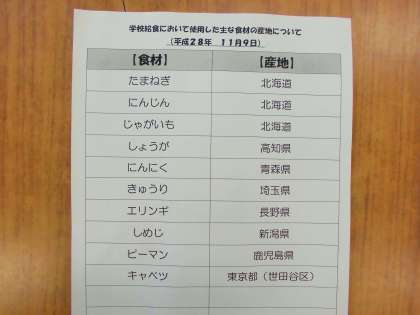 学校給食において使用した主な食材の産地について
（平成２８年　１１月９日）
【食材】　【産地】
たまねぎ　北海道
にんじん　北海道
じゃがいも　北海道
しょうが　高知県
にんにく　青森県
きゅうり　埼玉県
エリンギ　長野県
しめじ　新潟県
ピーマン　鹿児島県
キャベツ　東京都（世田谷区）